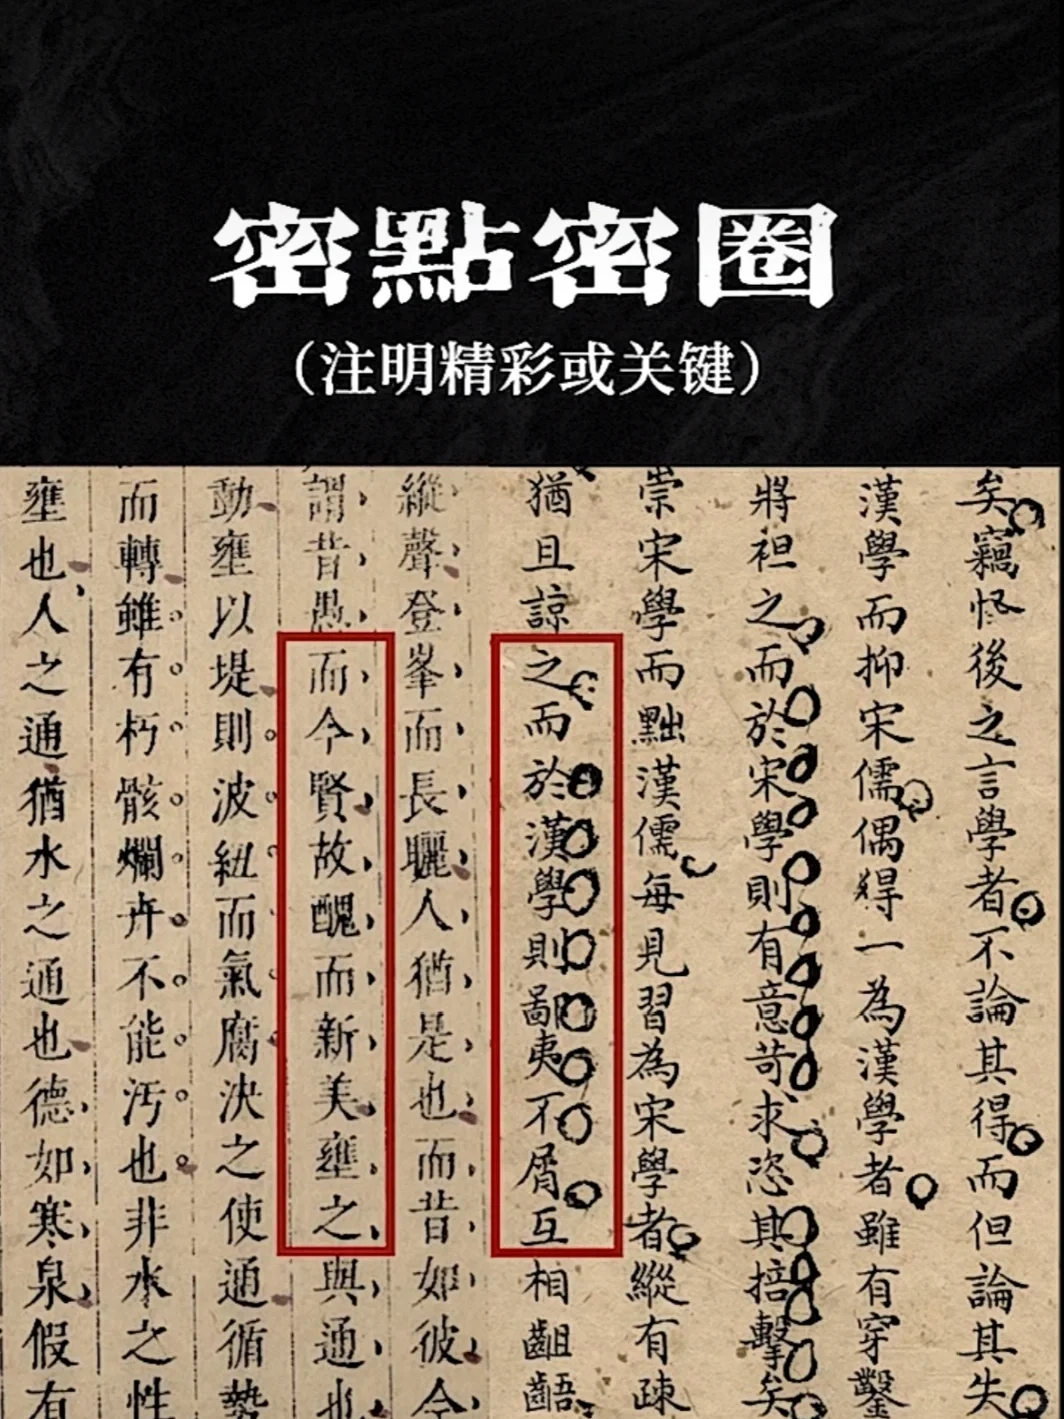 密點密圈
（注明精彩或关键）
矣竊怪後之言學者不論其得而但論其失
漢學而抑宋儒偶得一為漢學者雖有穿鑿
將袒之而於宋學則有意苛求恣其掊擊矣
崇宋學而黜漢儒每見習為宋學者縱有疎
猶且諒之而於漢學則鄙夷不屑互相齟齬
縱聲登峯而長矖人猶是也而昔如彼今
謂昔愚而今賢故醜而新美壅之與通也
動壅以堤則波紐而氣腐決之使通循勢
而轉雖有朽骸爛卉不能污也非水之性
壅也人之通猶水之通也德如寒泉假有